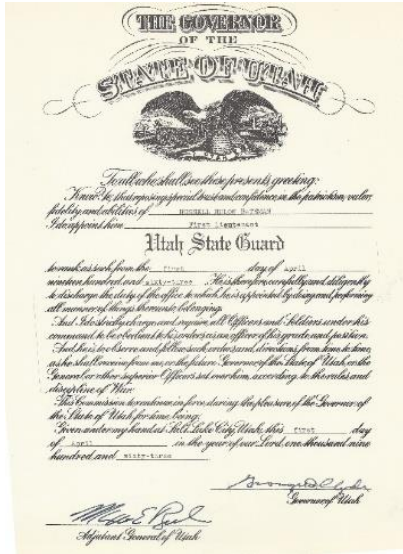 THE GOVERNOR
OF THE
STATE OF UTAH
To all who shall see these presents, greeting:
Know Ye, that reposing special trust and confidence in the patriotism, valor,
fidelity, and abilities of
I do appoint him First Lieutenant
Utah State Guard
to rank as such from the first day of April
nineteen hundred and sixty-three. He is therefore carefully and diligently
to discharge the duty of the office to which he is appointed by doing and performing
all manner of things thereunto belonging.
And I do strictly charge and require all Officers and Soldiers under his
command to be obedient to his orders as an officer of his grade and position.
And he is to observe and follow such orders and directions, from time to time,
as he shall receive from me, or the future Governor of the State of Utah, or the
General or other Superior Officers set over him, according to the rules and
discipline of War.
This Commission to continue in force during the pleasure of the Governor of
the State of Utah for time being.
Given under my hand at Salt Lake City, Utah, this first day
of April in the year of our Lord, one thousand nine
hundred and sixty-three.
Governor of Utah
Adjutant General of Utah